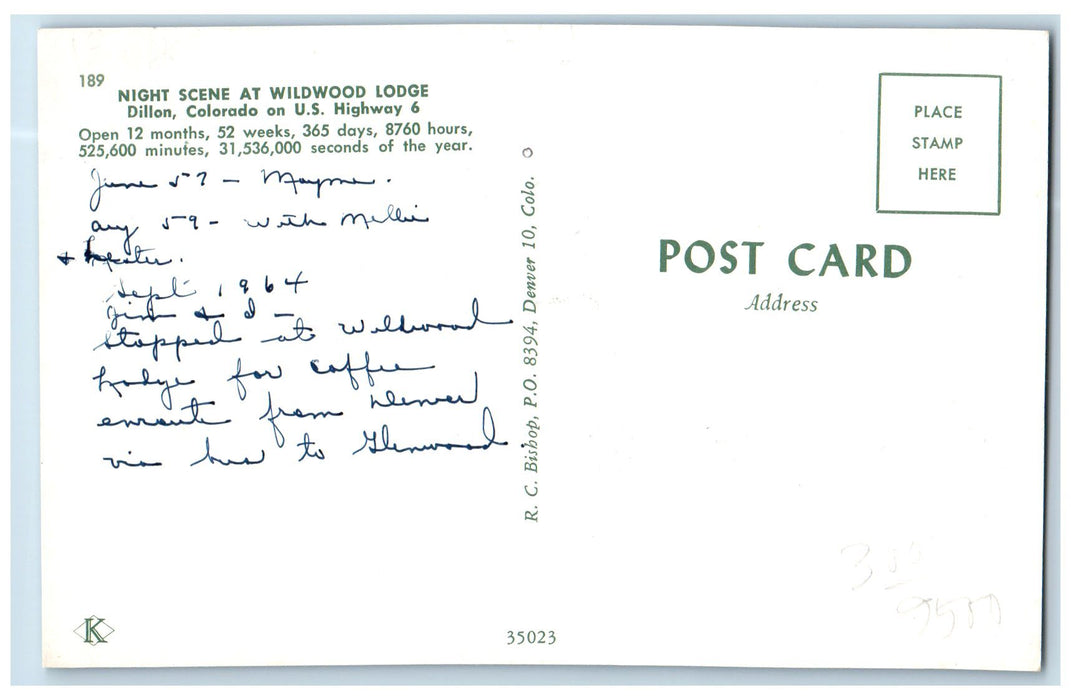 189
NIGHT SCENE AT WILDWOOD LODGE
Dillon, Colorado on U.S. Highway 6
Open 12 months, 52 weeks, 365 days, 8760 hours,
525,600 minutes, 31,536,000 seconds of the year.
June 57 - Mayme.
Aug 59 - with Millie
+
Sept 1964
Jim & I -
stopped at Wildwood
Lodge for coffee
enroute from Denver
via bus to Glenwood.
R. C. Bishop, P.O. 8394, Denver 10, Colo.
PLACE
STAMP
HERE
POST CARD
Address
K
35023